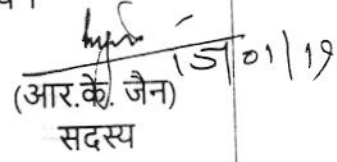 15/01/19
(आर.के. जैन)
सदस्य